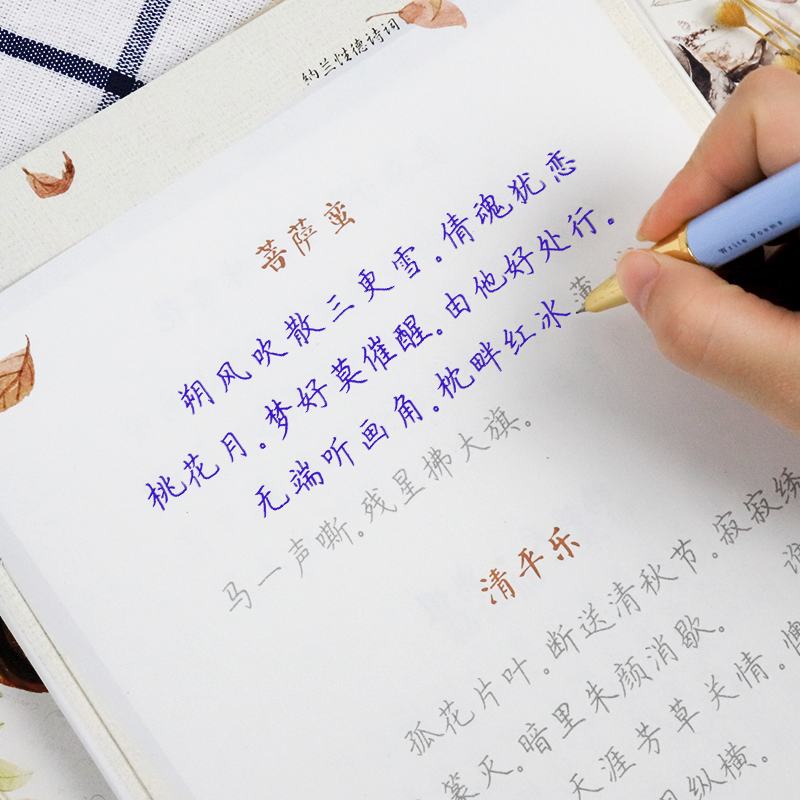 纳兰性德诗词
菩萨蛮
朔风吹散三更雪。倩魂犹恋
桃花月。梦好莫催醒。由他好处行。
无端听画角。枕畔红冰薄
马一声嘶。残星拂大旗。
清平乐
孤花片叶。断送清秋节。寂寂绣
篆灭。暗里朱颜消歇。
谁
天涯芳草关情。
纵横。
Write Poems